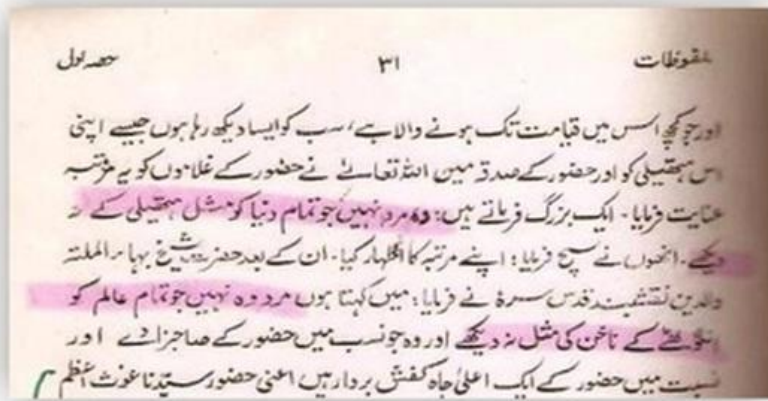 ملفوظات ۳۱ حصہ اول
اور جو کچھ اس میں قیامت تک ہونے والا ہے، سب کو ایسا دیکھ رہا ہوں جیسے اپنی
اس ہتھیلی کو اور حضور کے صدقہ میں اللہ تعالےٰ نے حضور کے غلاموں کو یہ مرتبہ
عنایت فرمایا۔ ایک بزرگ فرماتے ہیں: وہ مرد نہیں جو تمام دنیا کو مثل ہتھیلی کے نہ
دیکھے۔ انھوں نے سچ فرمایا؛ اپنے مرتبہ کا اظہار کیا۔ ان کے بعد حضرت شیخ بہاء الملتہ
والدین نقشبند قدس سرہٗ نے فرمایا: میں کہتا ہوں مرد وہ نہیں جو تمام عالم کو
انگوٹھے کے ناخن کی مثل نہ دیکھے اور وہ جو نسب میں حضور کے صاحبزادے اور
نسبت میں حضور کے ایک اعلیٰ جاہ کفش بردار ہیں اعنی حضور سیدنا غوث اعظم